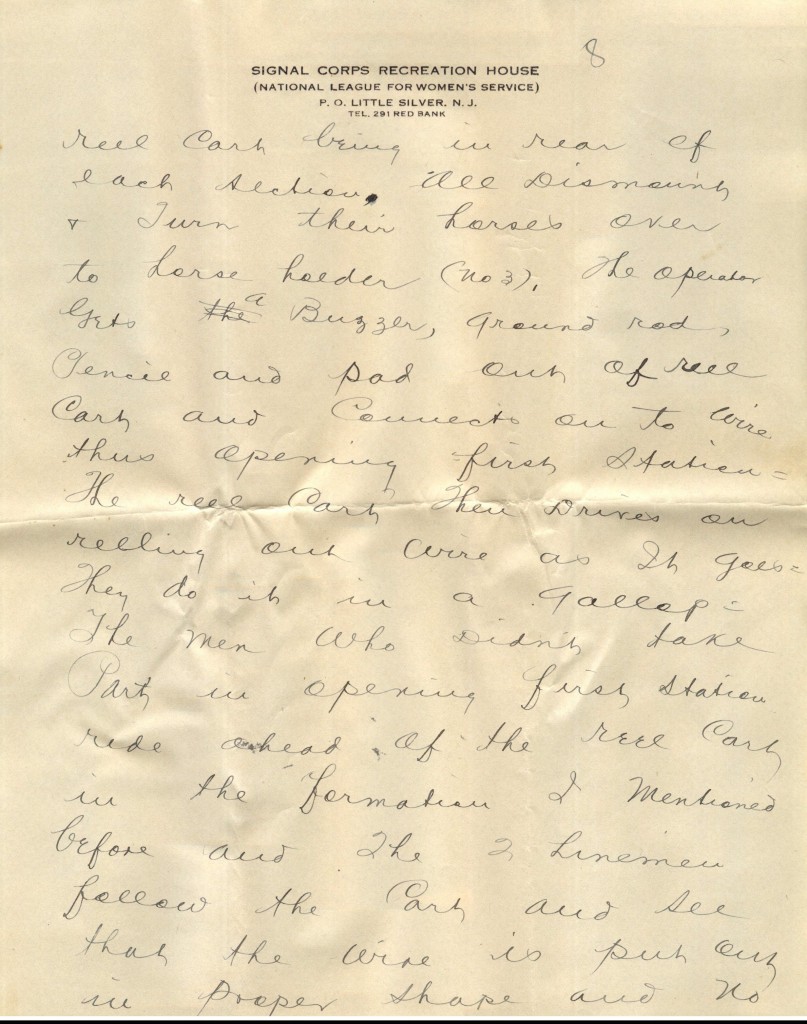 8
SIGNAL CORPS RECREATION HOUSE
(NATIONAL LEAGUE FOR WOMEN'S SERVICE)
P. O. LITTLE SILVER, N. J.
TEL. 291 RED BANK
reel Cart being in rear of
each section. All Dismount
& Turn their horses over
to horse holder (No 3). The operator
Gets the a Buzzer, ground rod,
Pencil and pad out of reel
Cart and Connects on to wire
thus opening first Station =
The reel Cart Then Drives on
relling out wire as It goes =
They do it in a Gallop =
The men who Didn't take
Part in opening first station
ride ahead of the reel Cart
in the formation I mentioned
before and The 2 Linemen
follow the Cart and see
that the wire is put out
in proper shape and No